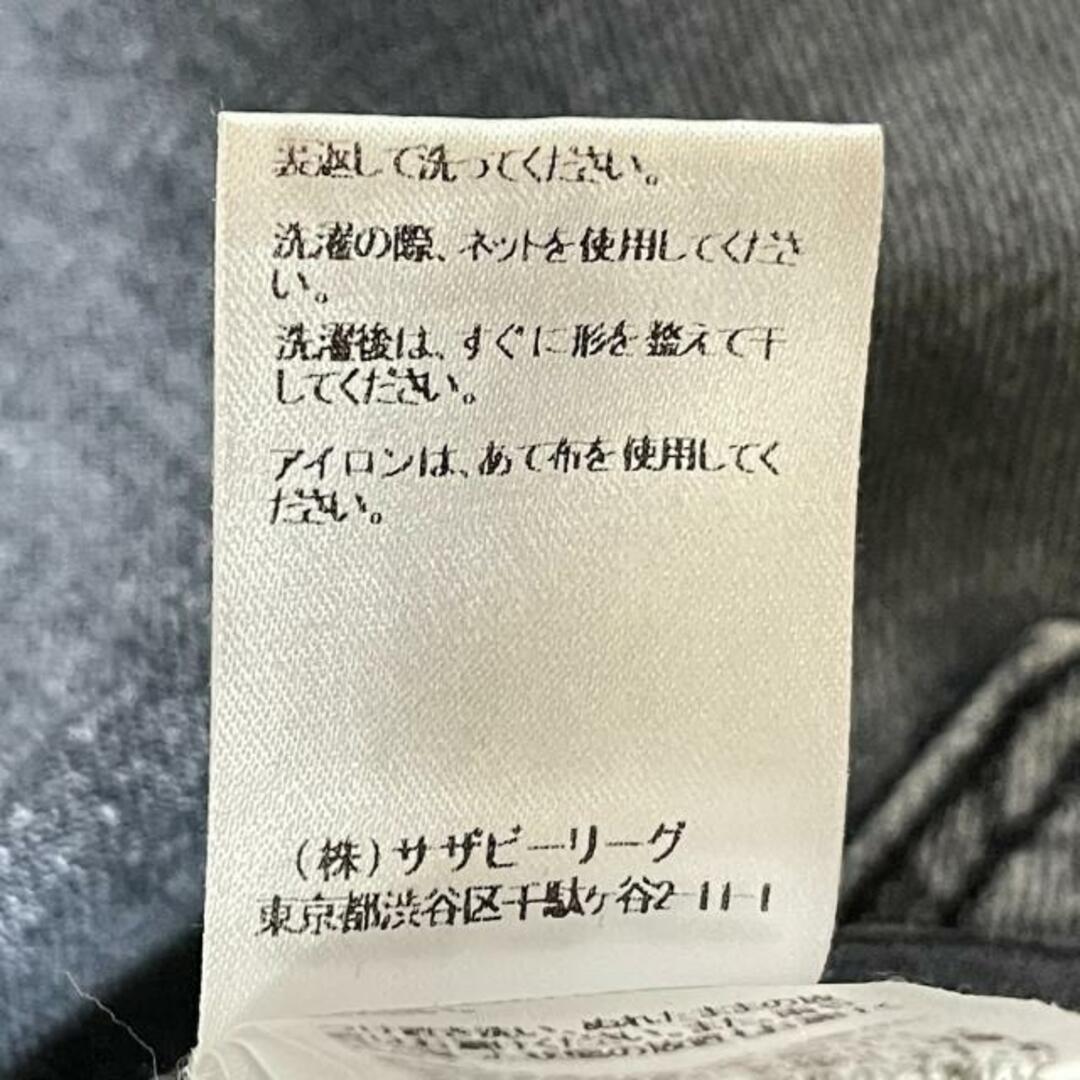 裏返して洗ってください。
洗濯の際、ネットを使用してくださ
い。
洗濯後は、すぐに形を整えて干
してください。
アイロンは、あて布を使用してく
ださい。
(株)サザビーリーグ
東京都渋谷区千駄ヶ谷2-11-1